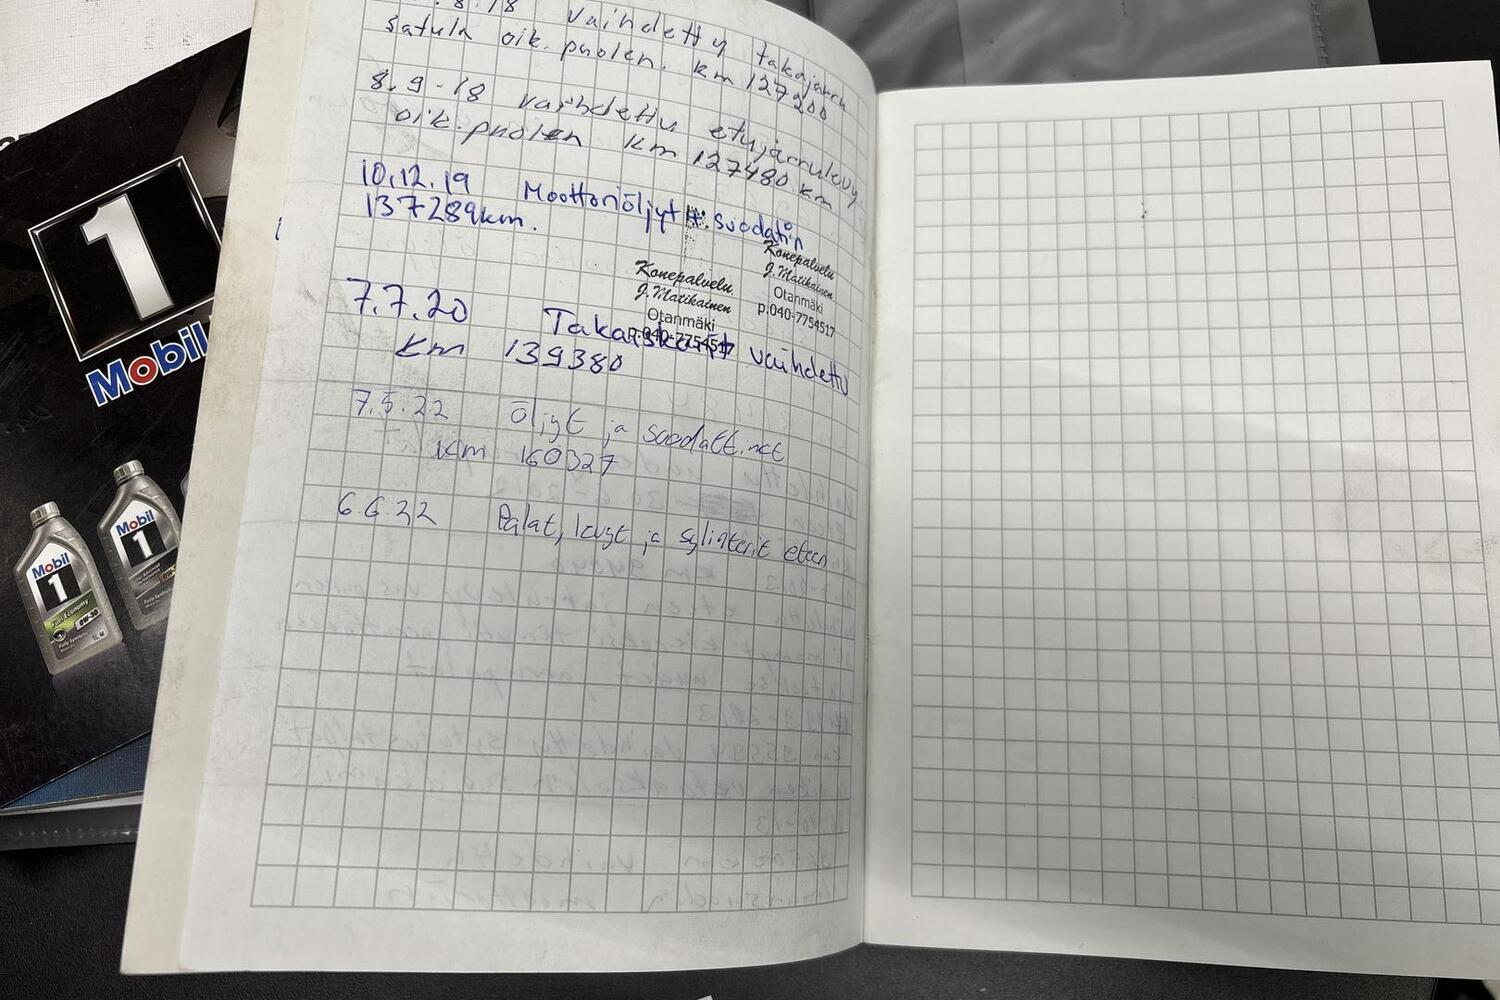 .8.18 vaihdettu takajarru
satula oik. puolen. km 127200
8.9-18 vaihdettu etujarrulevy
oik. puolen km 127480 km
10.12.19 Moottoriöljyt + suodatin
137289km.
Konepalvelu
J.Matikainen
Otanmäki
p.040-7754517
Konepalvelu
J.Matikainen
Otanmäki
p.040-7754517
7.7.20 vaihdettu
km 139380
7.5.22 Öljyt ja suodatt.net
km 160327
6.6.22 Palat, levyt ja sylinterit eteen
1
Mobil
Mobil
1
Fuel Economy
0W-30
Mobil
1